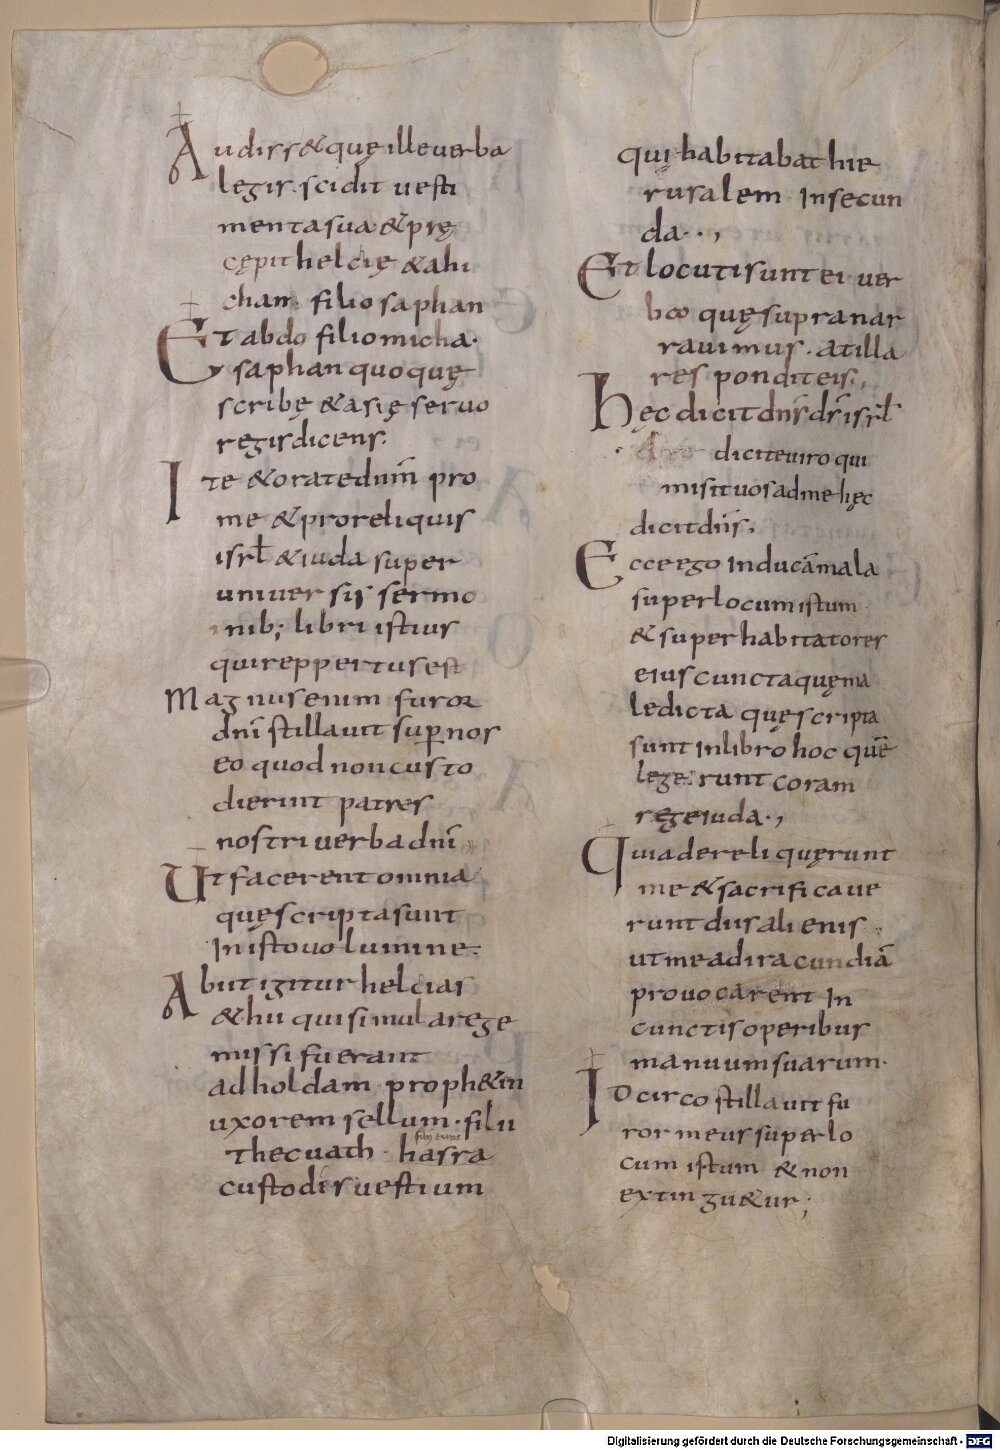 Audiss& quę ille uerba
legis. scidit uesti
menta sua & prę
cępit helcię & ahi
cham. filio saphan
Et abdo filio micha.
& saphan quoquę
scribę & asię seruo
regis dicens.
Ite & orate dnm̄ pro
me & pro reliquis
isrł & iuda super
uniuersis sermo
nib; libri istius
qui reppertus est
Magnus enim furor
dnī stillauit sup̄ nos
eo quod non custo
dierint patres
nostri uerba dnī
Ut facerent omnia
quę scripta sunt
In isto uolumine.
Abut igitur helcias
& hii qui simul a rege
missi fuerant
ad holdam. proph&in
uxorem sellum. filii
thecuath. hasra
custodis uestium
qui habitabat hie
rusalem In secun
da..,
Et locuti sunt ei uer
ba quę supra nar
rauimus. at illa
respondit eis.,
hęc dicit dns̄ ds̄ isrł
dicite uiro qui
misit uos ad me hęc
dicit dns̄.
Ecce ego Inducā mala
super locum istum
& super habitatores
eius cuncta quę ma
ledicta quę scripta
sunt In libro hoc quē
legerunt coram
rege iuda.,
Quia dereliquęrunt
me & sacrificaue
runt diis alienis
ut me ad iracundiā
prouocarent In
cunctis operibus
manuum suarum.
Idcirco stillauit fu
ror meus super lo
cum istum & non
extingu&ur;
Digitalisierung gefördert durch die Deutsche Forschungsgemeinschaft - DFG